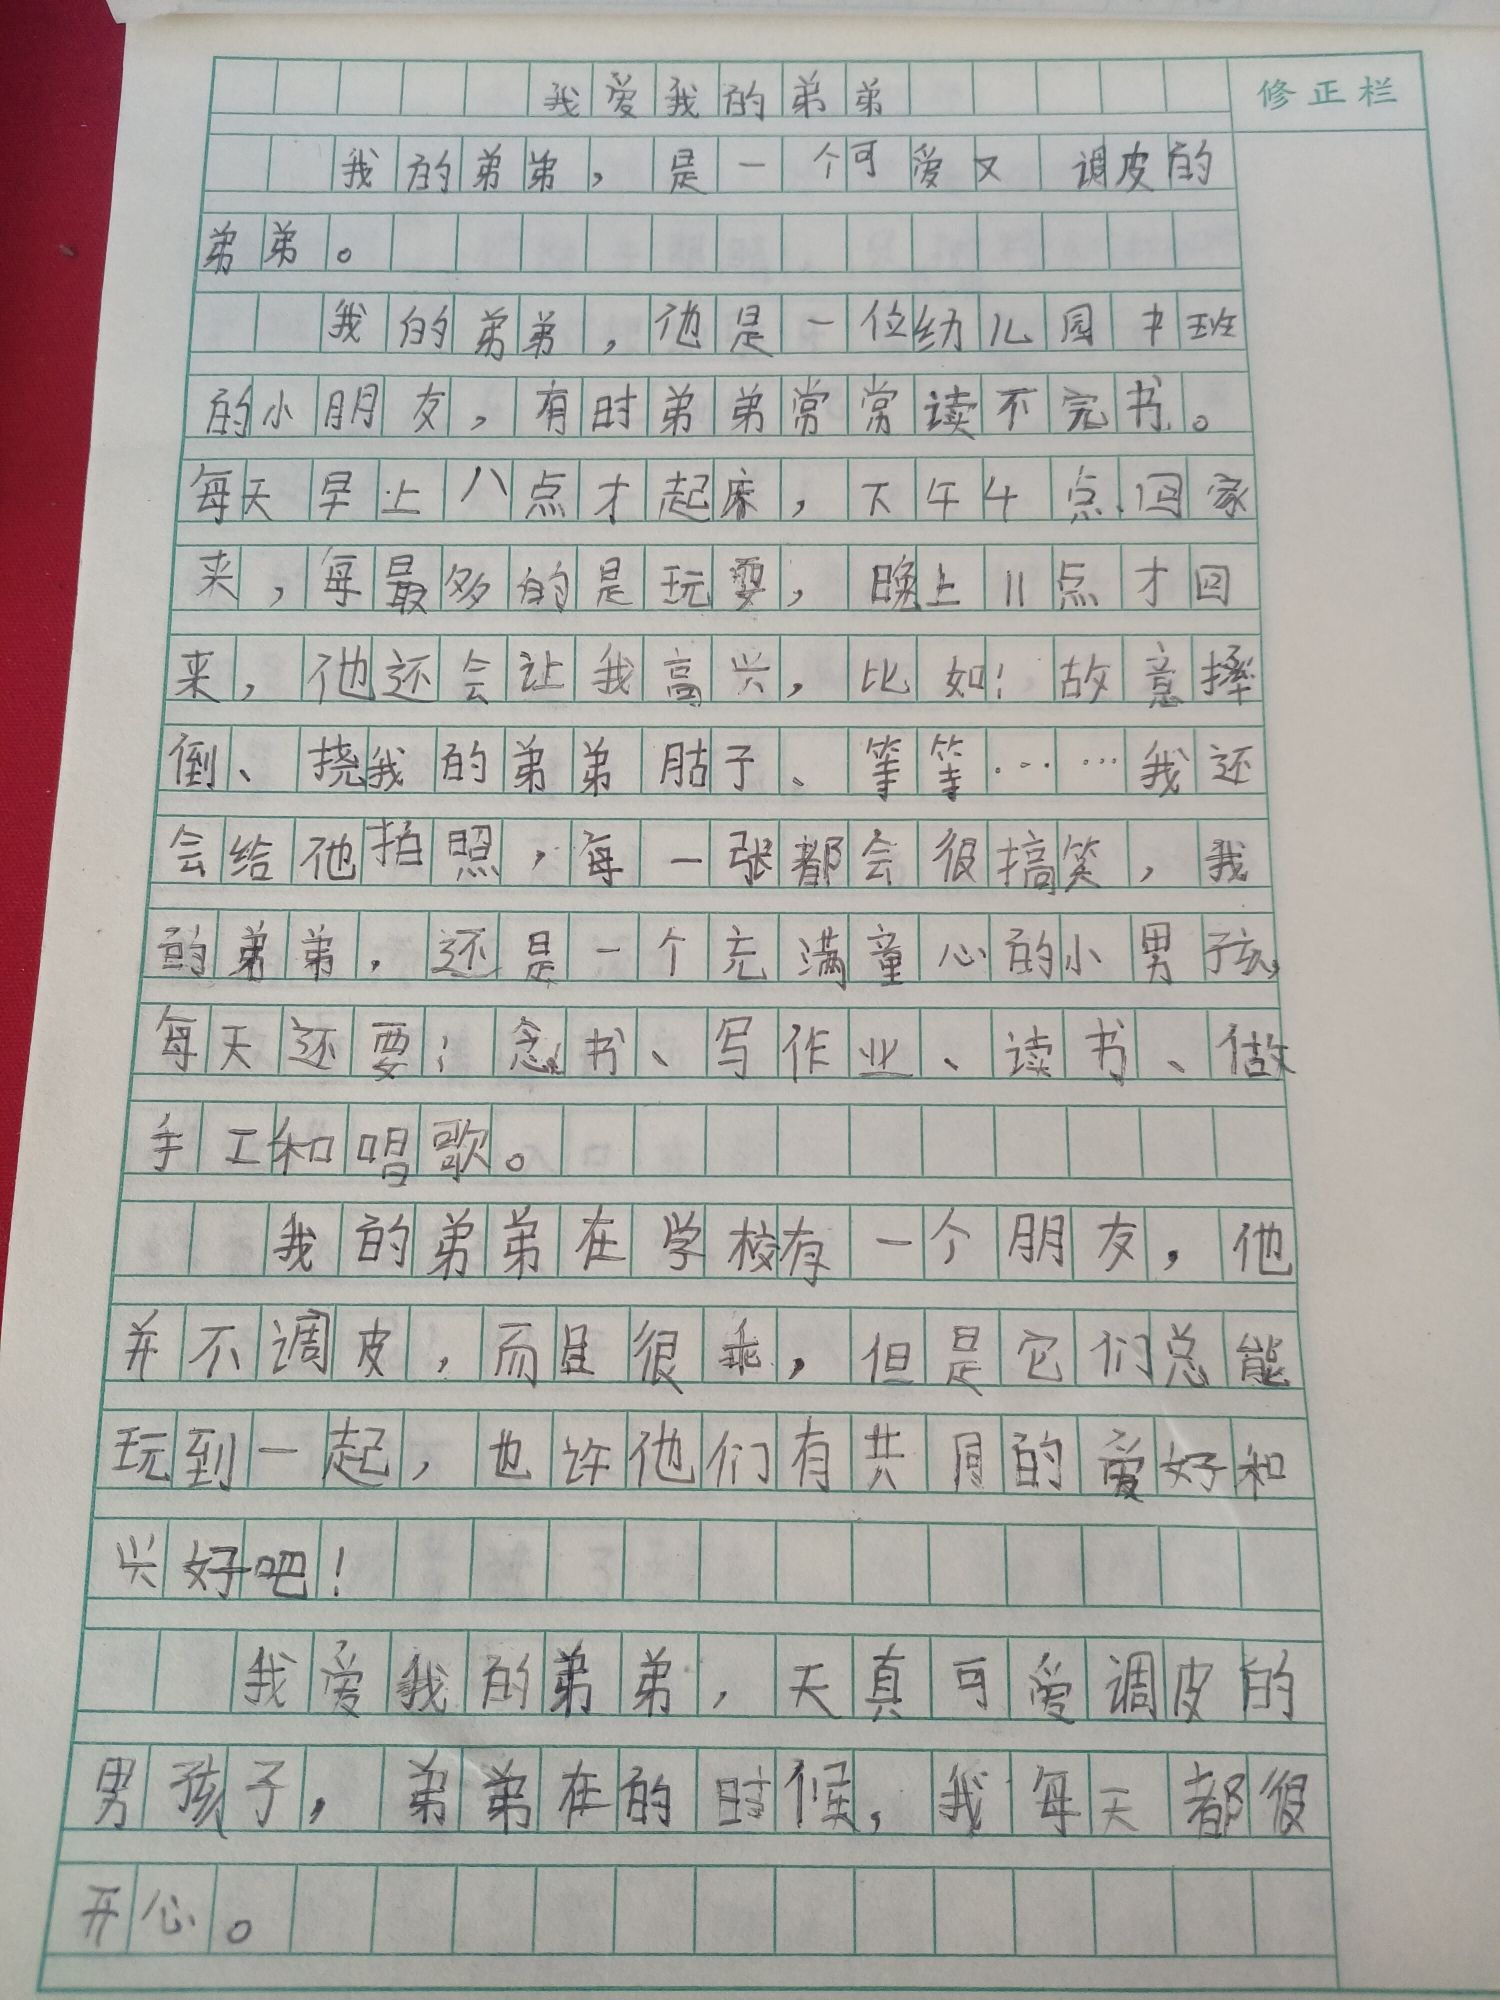 我爱我的弟弟
修正栏
我的弟弟，是一个可爱又调皮的
弟弟。
我的弟弟，他是一位幼儿园中班
的小朋友，有时弟弟常常读不完书。
每天早上八点才起床，下午4点回家
来，每最多的是玩耍，晚上11点才回
来，他还会让我高兴，比如！故意摔
倒、挠我的弟弟肚子、等等……我还
会给他拍照，每一张都会很搞笑，我
的弟弟，还是一个充满童心的小男孩，
每天还要：念书、写作业、读书、做
手工和唱歌。
我的弟弟在学校有一个朋友，他
并不调皮，而且很乖，但是它们总能
玩到一起，也许他们有共同的爱好和
兴好吧！
我爱我的弟弟，天真可爱调皮的
男孩子，弟弟在的时候，我每天都很
开心。